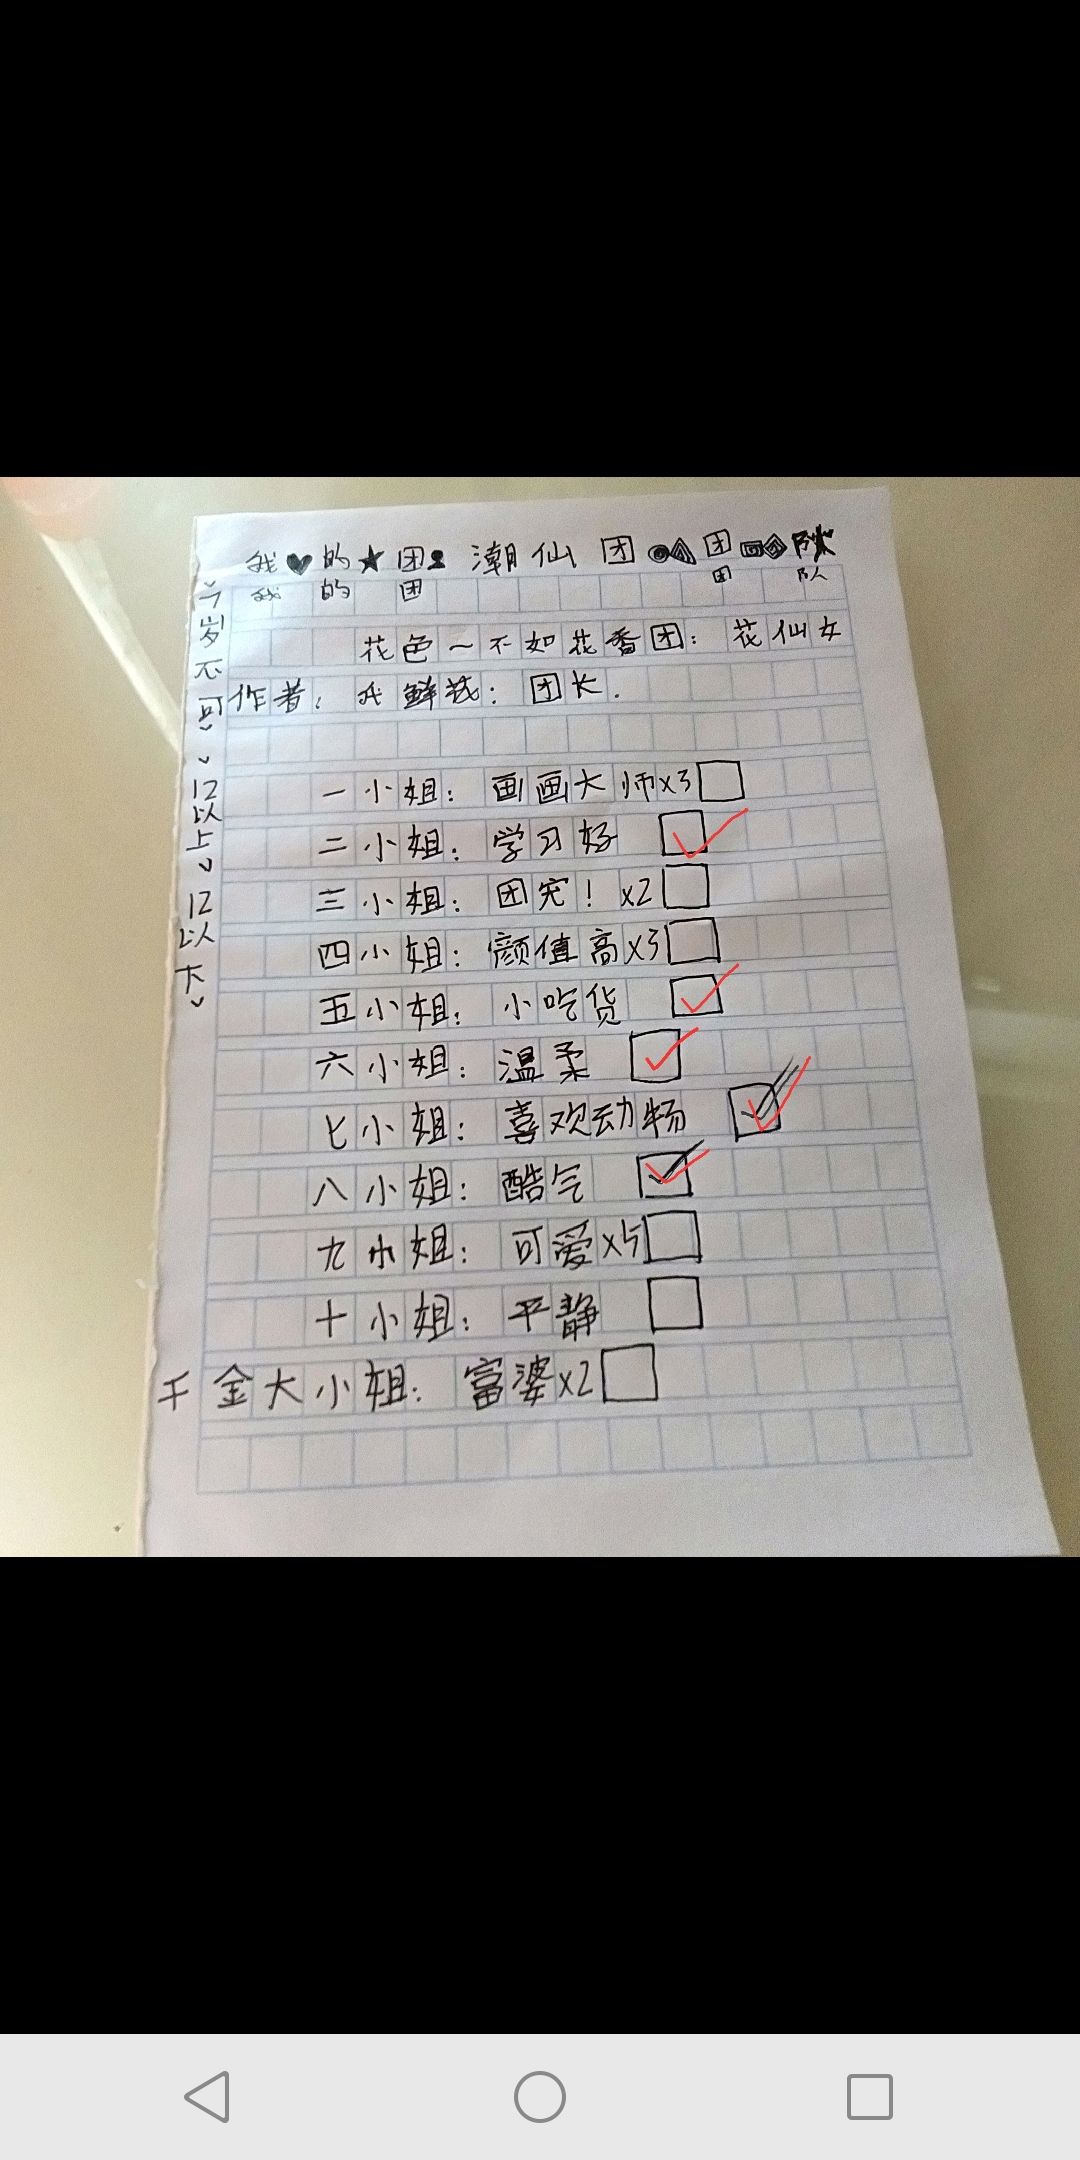 我♥的★团 潮仙团 团 队
我 的 团 团 队
花色～不如花香团：花仙女
作者：我鲜钱：团长.
一小姐：画画大师x3
二小姐：学习好
三小姐：团宠！x2
四小姐：颜值高x3
五小姐：小吃货
六小姐：温柔
七小姐：喜欢动物
八小姐：酷气
九小姐：可爱x5
十小姐：平静
千金大小姐：富婆x2
岁不可
12以上
12以下